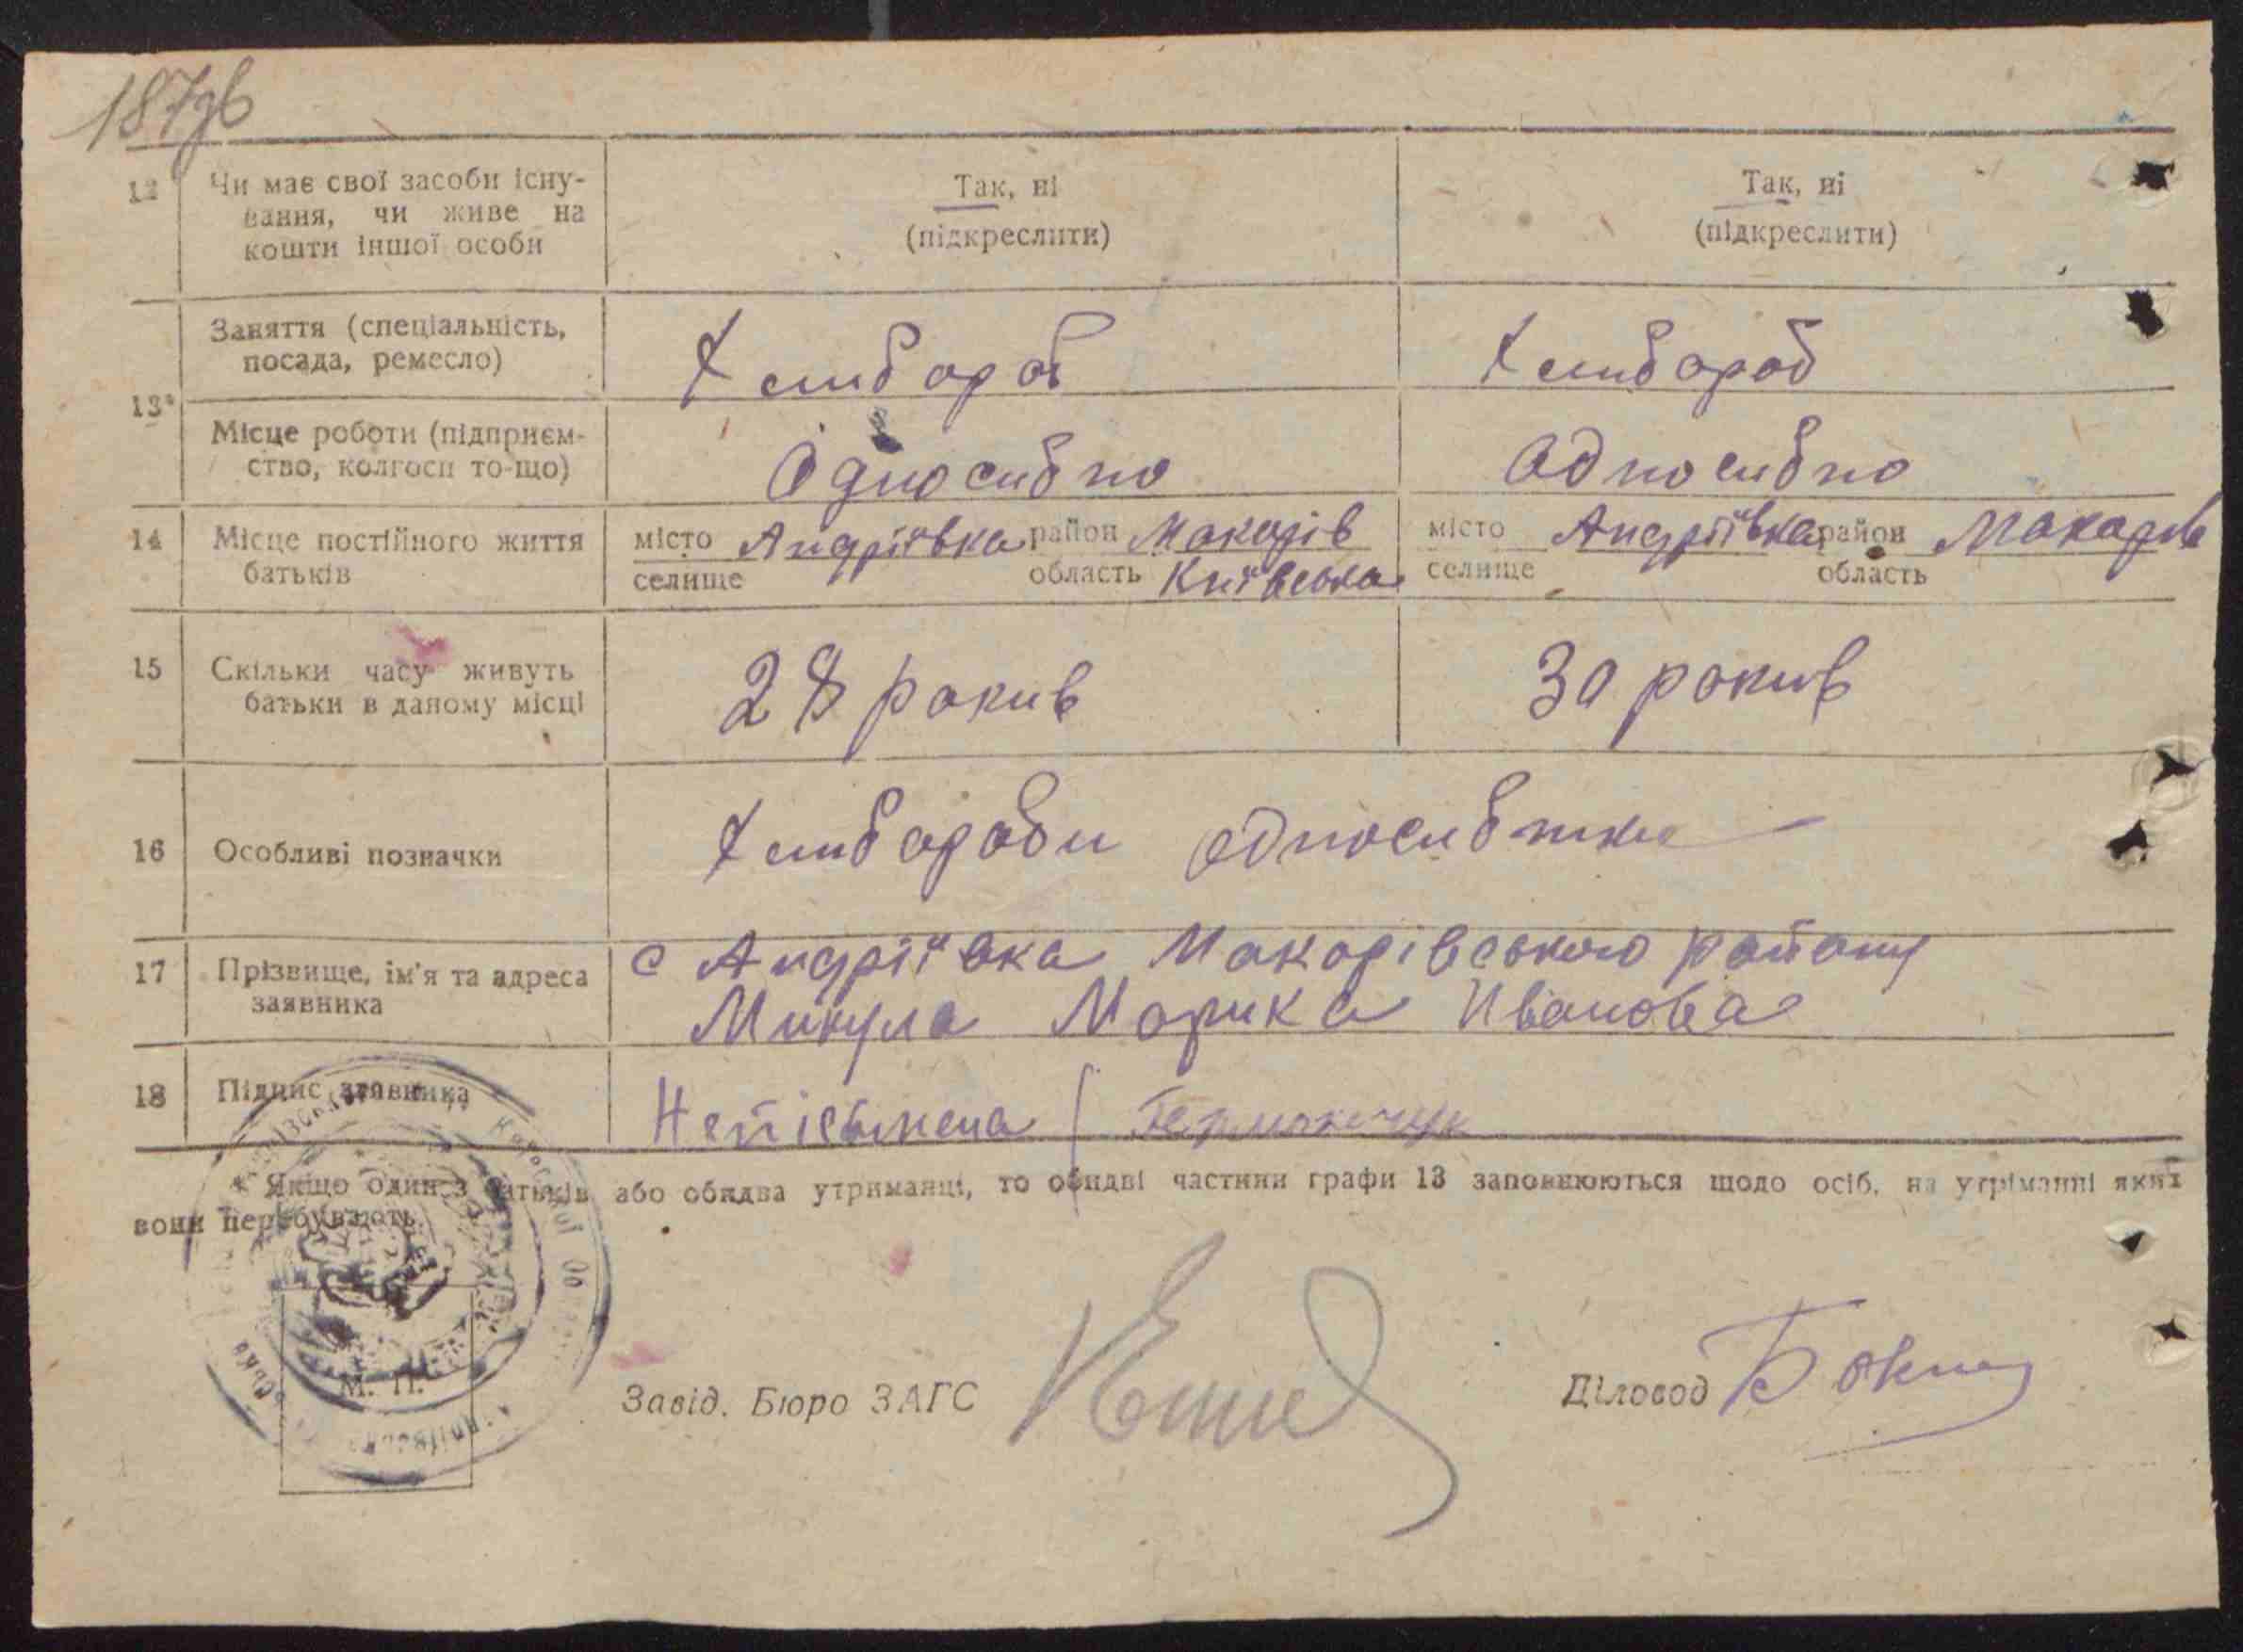 187зв
12 Чи має свої засоби існу-
вання, чи живе на
кошти іншої особи
Так, ні
(підкреслити)
Так, ні
(підкреслити)
13
Заняття (спеціальність,
посада, ремесло)
Хлибороб
Хлибороб
Місце роботи (підприєм-
ство, колгосп то-що)
Односибно
Односибно
14 Місце постійного життя
батьків
місто Андріївка район Макарів
селище область Київська
місто Андріївка район Макарів
селище область
15 Скільки часу живуть
батьки в даному місці
28 рокив
30 рокив
16 Особливі позначки
Хлибороби односибники
17 Прізвище, ім'я та адреса
заявника
с Андріївка Макарівського району
Микула Марика Иванова
18 Підпис заявника
Непісьмена
Якщо один з батьків або обидва утриманці, то обидві частини графи 13 заповнюються щодо осіб, на утріманні яких
вони перебувають.
М. П.
Завід. Бюро ЗАГС
Діловод